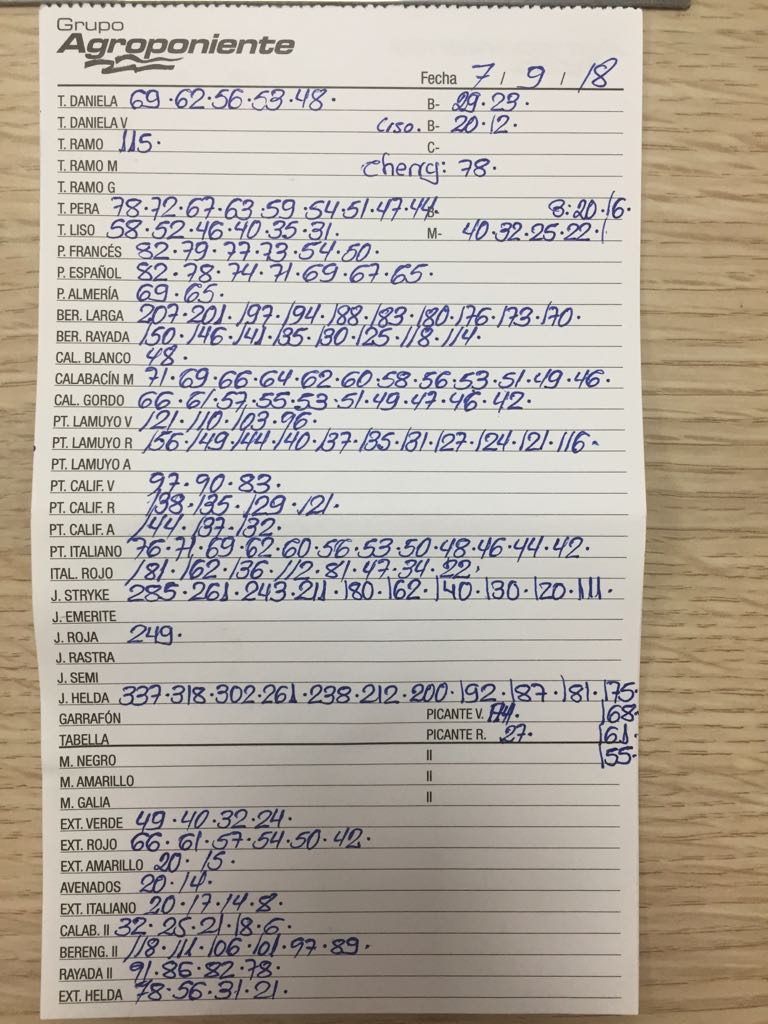 Grupo
Agroponiente
Fecha 7 / 9 / 18
T. DANELA 69·62·56·53·48· B- 29·23·
T. DANIELA V Liso. B- 20·12·
T. RAMO 115· C-
T. RAMO M Cherry: 78·
T. RAMO G
T. PERA 78·72·67·63·59·54·51·47·44· B- B:20·16·
T. LISO 58·52·46·40·35·31· M- 40·32·25·22·1
P. FRANCÉS 82·79·77·73·54·50·
P. ESPAÑOL 82·78·74·71·69·67·65·
P. ALMERÍA 69·65·
BER. LARGA 207·201·197·194·188·183·180·176·173·170·
BER. RAYADA 150·146·141·135·130·125·118·114·
CAL. BLANCO 48·
CALABACÍN M 71·69·66·64·62·60·58·56·53·51·49·46·
CAL. GORDO 66·61·57·55·53·51·49·47·46·42·
PT. LAMUYO V 121·110·103·96·
PT. LAMUYO R 156·149·144·140·137·135·131·127·124·121·116·
PT. LAMUYO A
PT. CALIF. V 97·90·83·
PT. CALIF. R 138·135·129·121·
PT. CALIF. A 144·137·132·
PT. ITALIANO 76·71·69·62·60·56·53·50·48·46·44·42·
ITAL. ROJO 181·162·136·112·81·47·34·22·
J. STRYKE 285·261·243·211·180·162·140·130·120·111·
J. EMERITE
J. ROJA 249·
J. RASTRA
J. SEMI
J. HELDA 337·318·302·261·238·212·200·192·187·181·175·
GARRAFÓN PICANTE V. 168·
TABELLA PICANTE R. 27· 161·
M. NEGRO II 155·
M. AMARILLO II
M. GALIA II
EXT. VERDE 49·40·32·24·
EXT. ROJO 66·61·57·54·50·42·
EXT. AMARILLO 20·15·
AVENADOS 20·14·
EXT. ITALIANO 20·17·14·8·
CALAB. II 32·25·21·18·6·
BERENG. II 118·111·106·101·97·89·
RAYADA II 91·86·82·78·
EXT. HELDA 78·56·31·21·